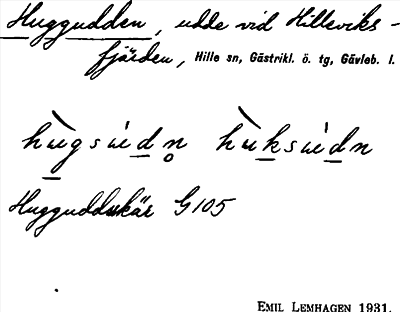 Huggudden, udde vid Hilleviks-
fjärden, Hille sn, Gästrikl. ö. tg, Gävleb. l.
hùgsẁdn̥ hùksẁdn
Hugguddskär G105
EMIL LEMHAGEN 1931.